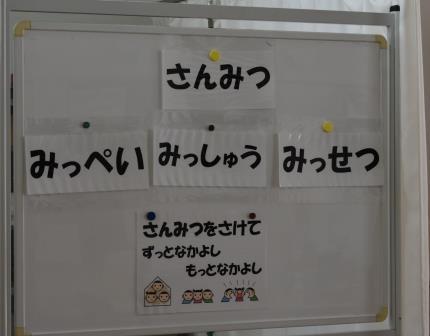 さんみつ
みっぺい
みっしゅう
みっせつ
さんみつをさけて
ずっとなかよし
もっとなかよし